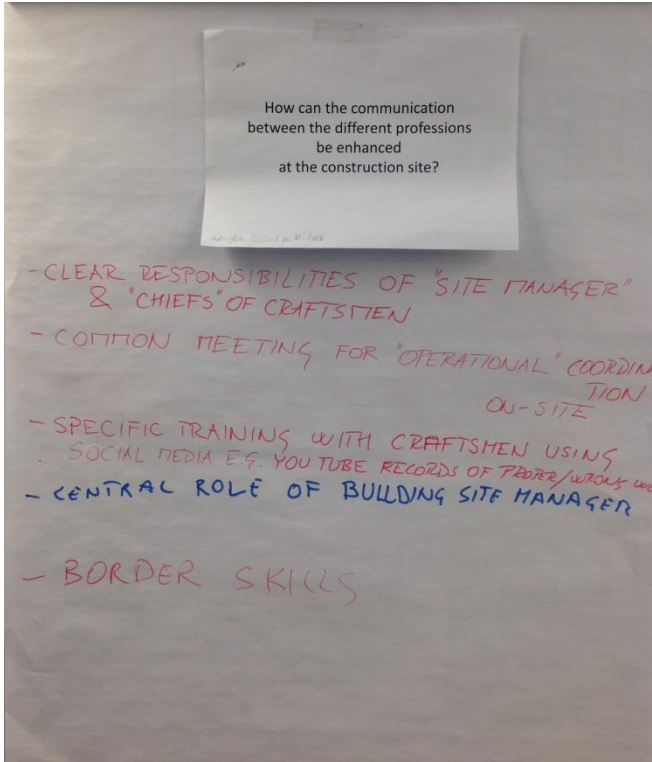 How can the communication
between the different professions
be enhanced
at the construction site?
- CLEAR RESPONSIBILITIES OF "SITE MANAGER"
& "CHIEFS" OF CRAFTSMEN
- COMMON MEETING FOR "OPERATIONAL" COORDIN
TION
ON-SITE
- SPECIFIC TRAINING WITH CRAFTSMEN USING
SOCIAL MEDIA E.G. YOU TUBE RECORDS OF PROPER/WRONG
- CENTRAL ROLE OF BUILDING SITE MANAGER
- BORDER SKILLS